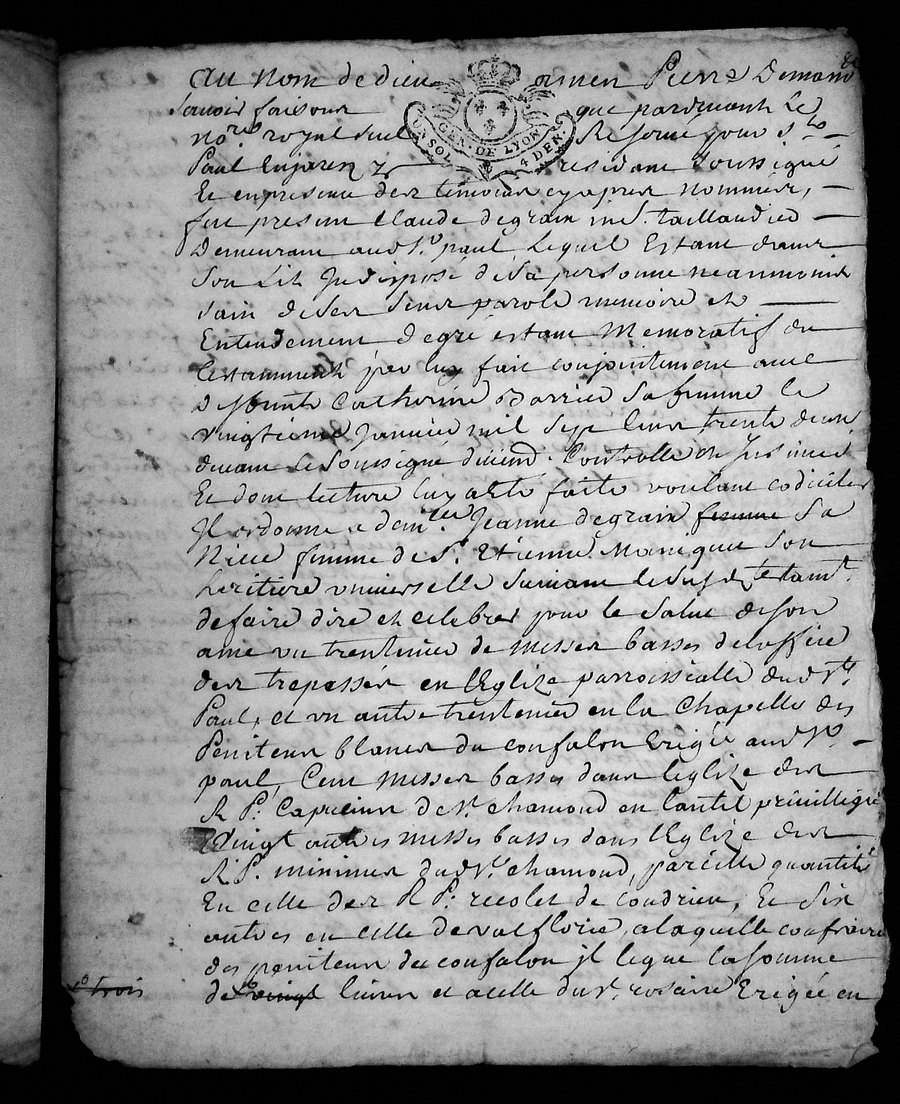 Au nom de dieu amen Pierre
Scavoir faisons que pardevant le
no.re royal Reservé pour S.t
Paul En jarez residant soussigné
Et en presence des temoins cy apres nommés,
fut present Claude degrain m.e taillandier
Demeurant aud S.t paul, Lequel Estant dans
Son Lit Indisposé de sa personne neanmoins
sain de ses sens parole memoire et
Entendement de gré estant Memoratif du
testamment par luy fait conjointement avec
deffunte Catherine sa femme le
vingtieme Janvier mil sept cens trente deux
devant le Soussigné Controllé et Insinué
Et dont lecture luy a Eté faite voulant codiciler
Il ordonne a dem.lle Jeanne degrain femme Sa
Niece femme de S.r Etienne Son
heritiere universelle suivant le susd testam.t
de faire dire et celebrer pour le Salut de son
ame un trentenier de messes basses de loffice
des trepassés en lEglize parroissialle dud S.t
Paul, et un autre trentenier en la Chapelle des
Penitens blancs du confalon Erigée aud S.t
paul, Cent messes basses dans leglize des
R P. Capucins de S.t chamond en lautel privilligié
Vingt autres messes basses dans lEglize des
R P. minimes dud S.t chamond, pareille quantité
En celle des R P. recolet de Condrieu, Et Six
autres en celle de valflorie, a laquelle confrairie
des peniteus du confalon il legue la somme
trois
de vingt livres et a celle du S.t rosaire Erigée en
GEN. DE LYON
UN SOL 4 DEN.